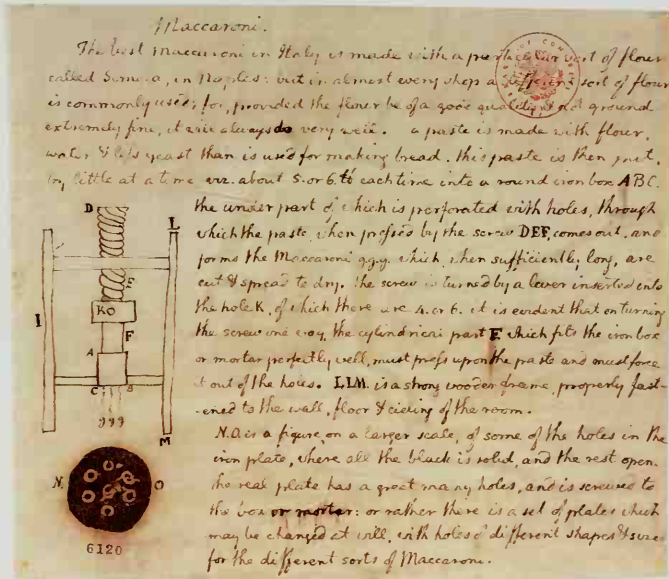 Maccaroni.
The best maccaroni in Italy is made with a particular sort of flour
called Semola, in Naples: but in almost every shop a different sort of flour
is commonly used; for, provided the flour be of a good quality, & not ground
extremely fine, it will always do very well. a paste is made with flour,
water & less yeast than is used for making bread. this paste is then put,
by little at a time viz. about 5. or 6. ℔ each time into a round iron box ABC.
the under part of which is perforated with holes, through
which the paste, when pressed by the screw DEF, comes out, and
forms the Maccaroni g.g.g. which, when sufficiently long, are
cut & spread to dry. the screw is turned by a lever inserted into
the hole K, of which there are 4. or 6. it is evident that on turning
the screw one way, the cylindrical part F. which fits the iron box
or mortar perfectly well, must press upon the paste and must force
it out of the holes. LLM. is a strong wooden frame, properly fast-
-ened to the wall, floor & cieling of the room.
N.O. is a figure, on a larger scale, of some of the holes in the
iron plate, where all the black is solid, and the rest open.
the real plate has a great many holes, and is screwed to
the box or mortar: or rather there is a set of plates which
may be changed at will, with holes of different shapes & sizes
for the different sorts of Maccaroni.
D
L
I
E
KO
F
A
C B
ggg
M
N O
6120